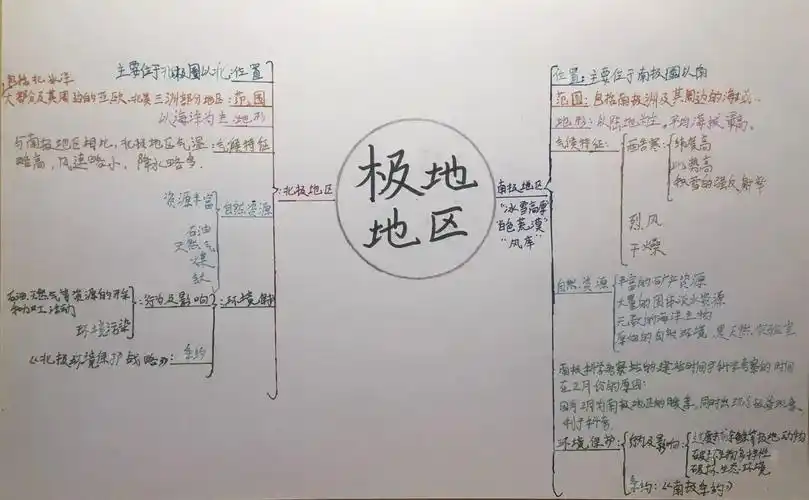 极地
地区
北极地区
主要位于北极圈以北:位置
包括北冰洋
大部分及其周边的亚欧、北美三洲部分地区:范围
以海洋为主:地形
与南极地区相比,北极地区气温:气候特征
略高,风速略小,降水略多.
资源丰富:自然资源
石油
天然气
煤
铁
环境保护
行为及影响
石油、天然气等资源的开采
环境污染
《北极环境保护战略》:条约
南极地区
"冰雪高原"
"白色荒漠"
"风库"
位置:主要位于南极圈以南
范围:包括南极洲及其周边的海域.
地形:以陆地为主,平均海拔最高.
气候特征:
酷寒:
纬度高
海拔高
积雪的强反射率
烈风
干燥
自然资源
丰富的矿产资源
大量的固体淡水资源
众多的海洋生物
原始的自然环境,是天然实验室
南极科学考察站的建站时间和科学考察的时间
在2月份的原因:
2月为南极地区的暖季,同时出现极昼现象,
利于科考.
环境保护:
行为及影响:
破坏生物多样性
破坏生态环境
条约:《南极条约》